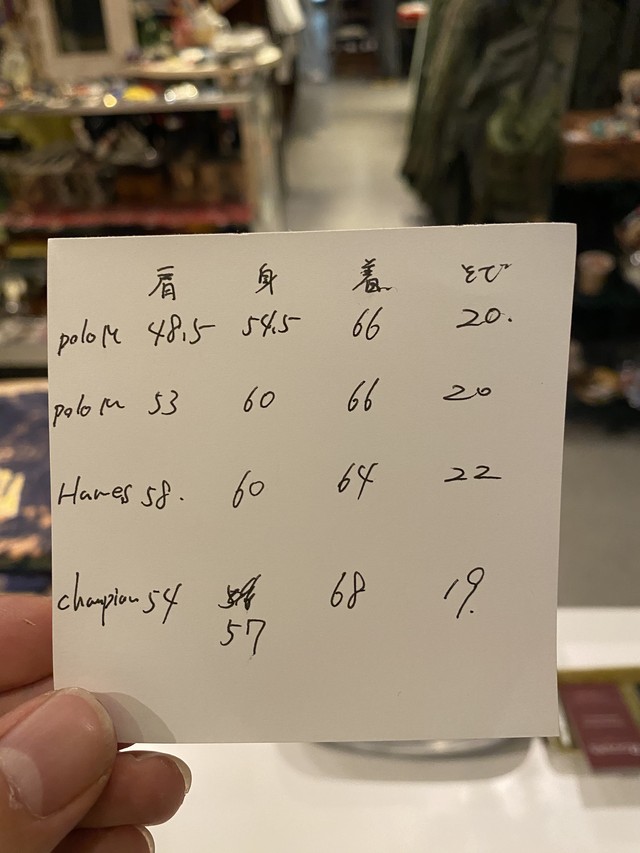 肩 身 着 そで
polo M 48.5 54.5 66 20.
polo M 53 60 66 20
Hanes 58. 60 64 22
champion 54 68 19.
57